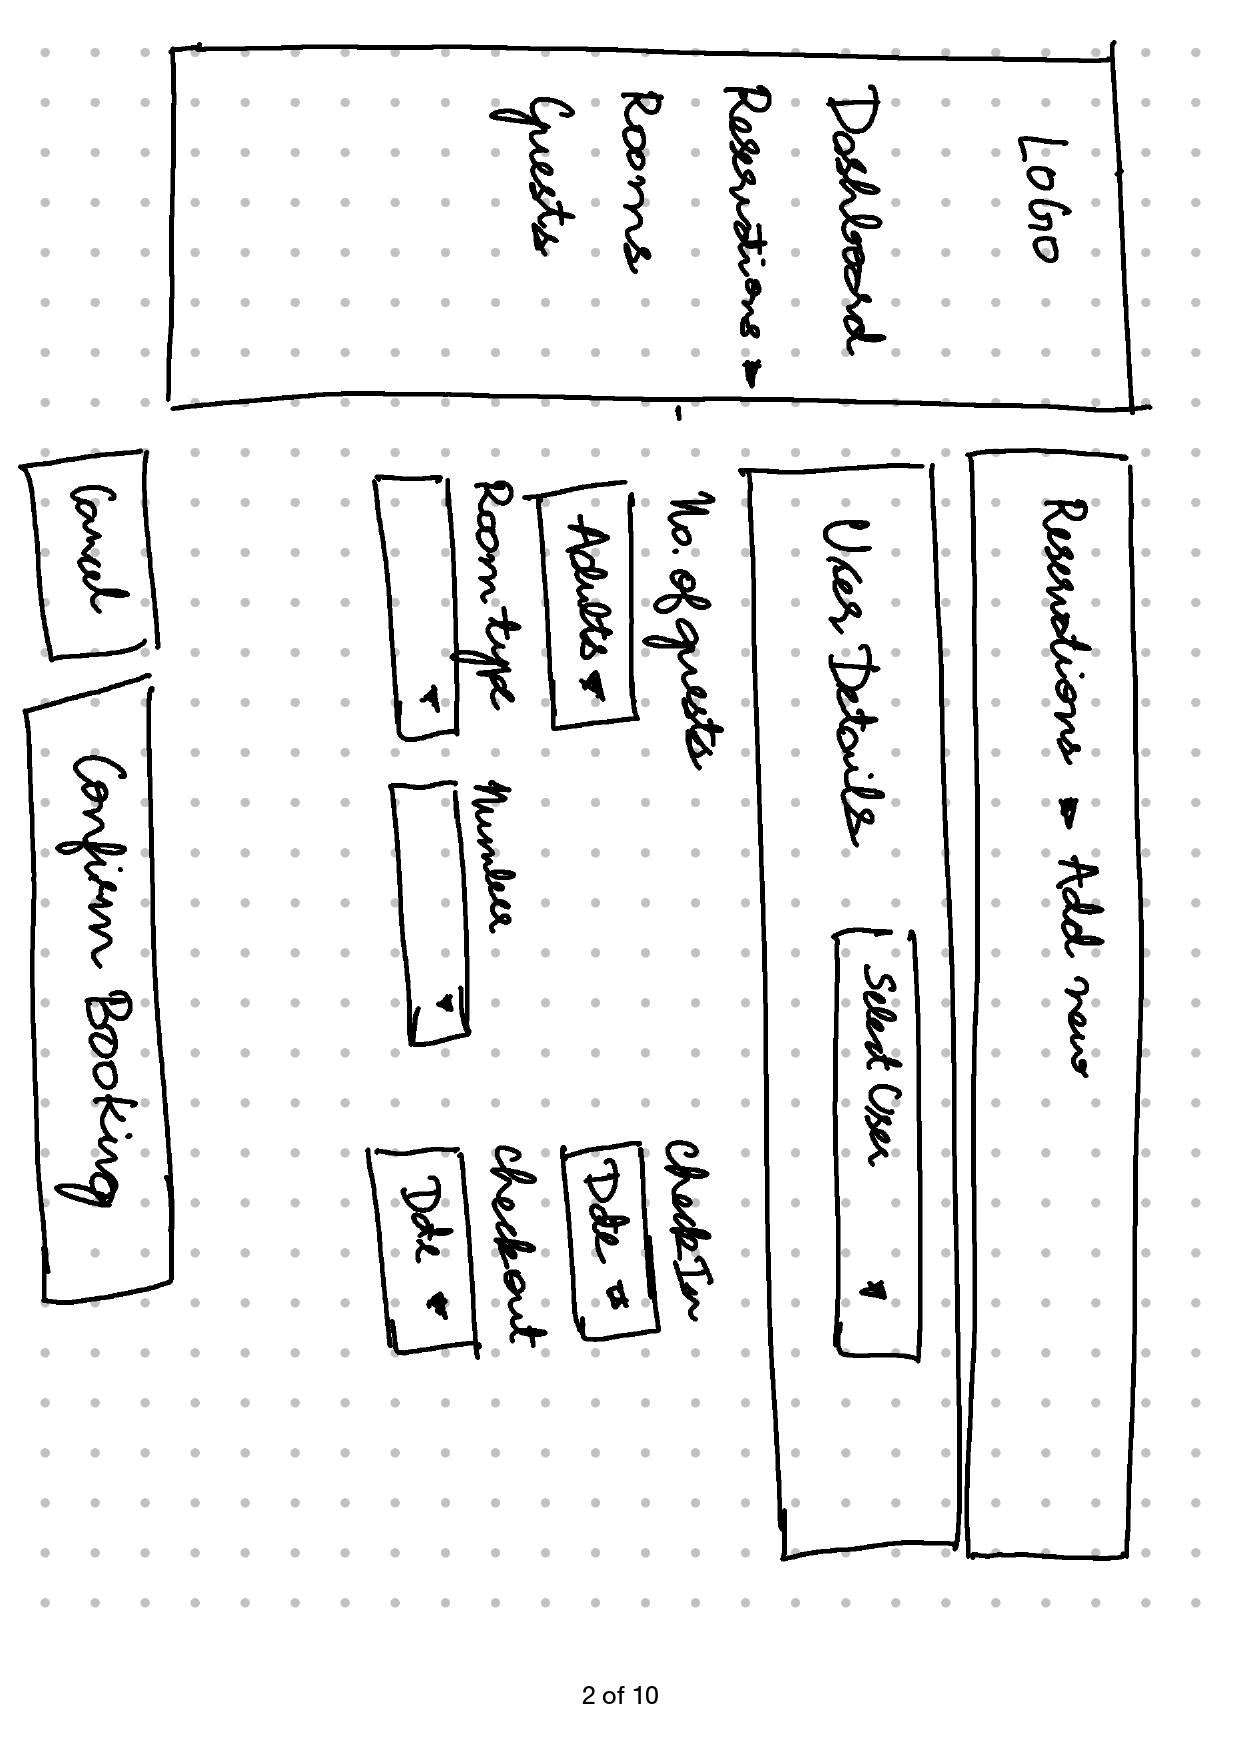 LOGO
Dashboard
Reservations
Rooms
Guests
Reservations Add new
User Details Select User
No. of guests
Adults
Room type Number
CheckIn
Date
Checkout
Date
Cancel Confirm Booking
2 of 10